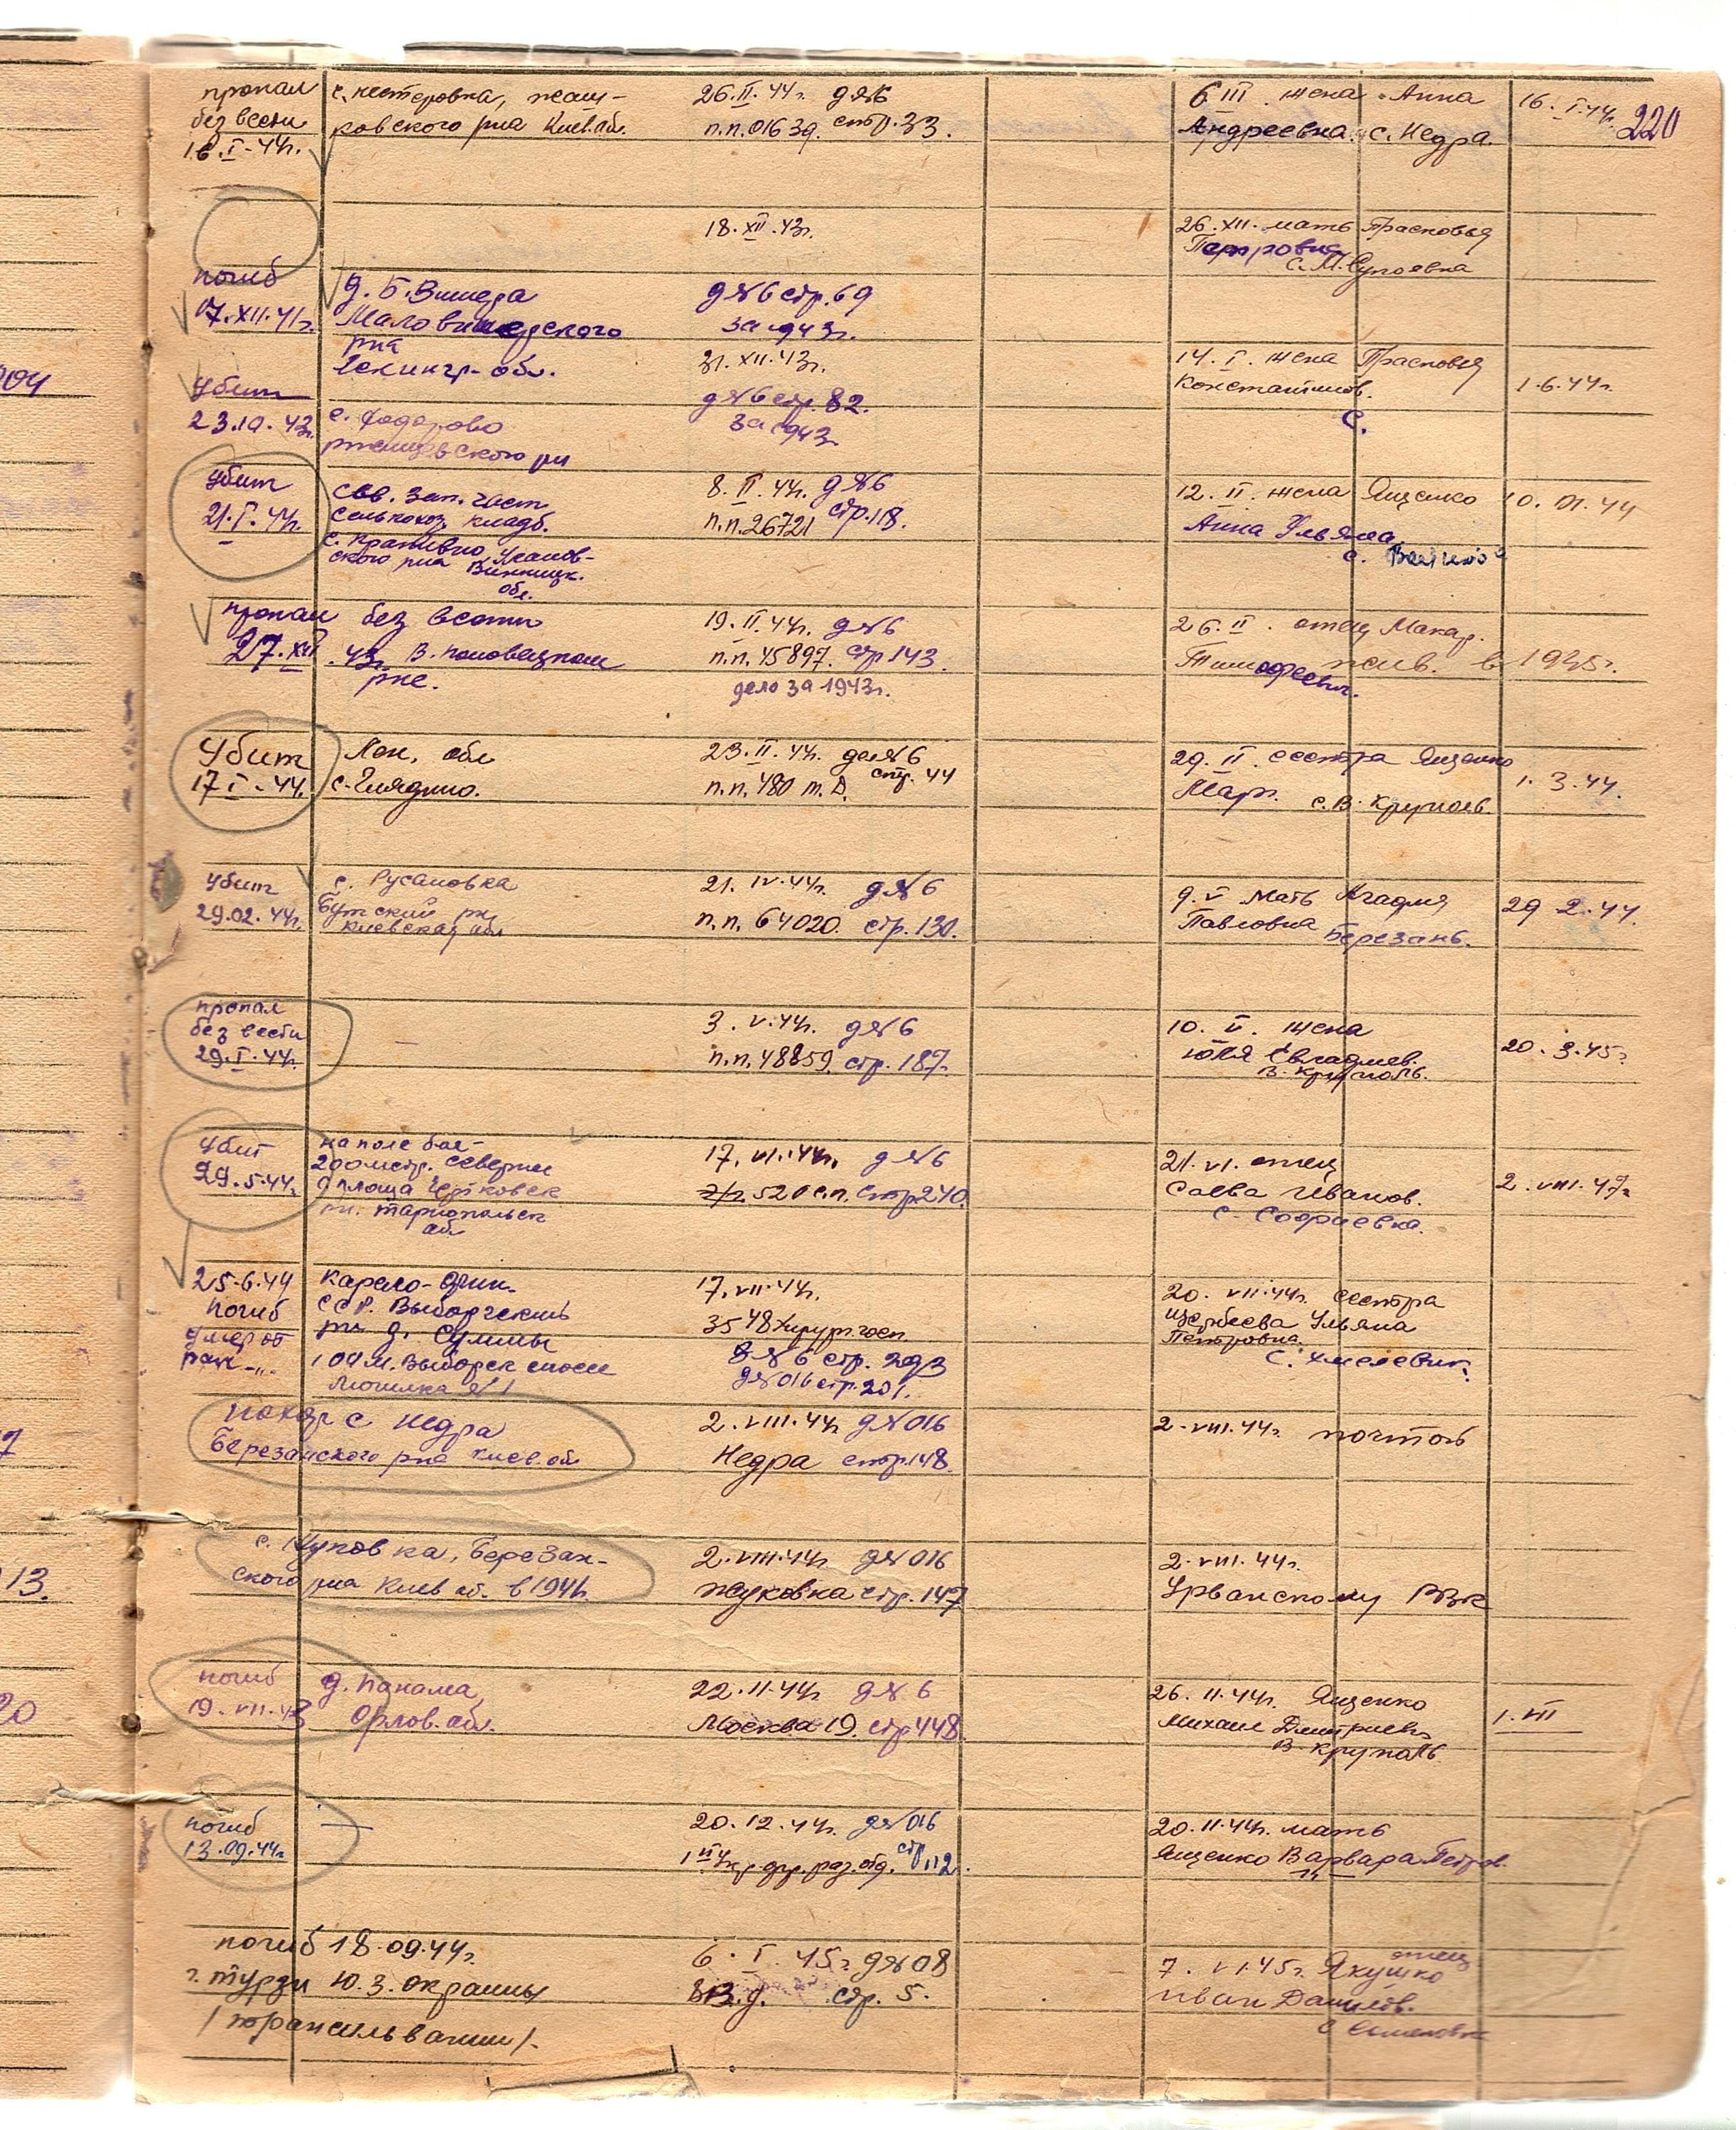 220
пропал
без вести
16.I-44г.
с. нестеровка, жаш-
ковского р-на Киев.об.
26.II.44г. д№6
п.п.01639. стр.33.
6 III. жена Анна
Андреевна. с. Недра.
16.I.44г.
погиб
07.XII.41г.
д. Б. Вишера
Маловишерского
р-на
Ленингр. обл.
18.XII.43г.
д№6 стр.69
за 1943г.
26.XII. мать Прасковья
Петровна
с. М. Супоевка
Убит
23.10.43г.
с. Ходорово
ржищевского р-н
31.XII.43г.
д№6 стр.82.
за 1943
14.I. жена Прасковья
Константинов.
с.
1.6.44г.
Убит
21.I.44г.
сев. зап. част
сельхоз. кладб.
с. Кропивно,
ского р-на Винницк.
обл.
8.II.44г. д№6
п.п.26721 стр.118.
12.II. жена Ященко
Анна Ульяна
с.
10.01.44
пропал без вести
27.XII.43г. В. половецком
р-не.
19.II.44г. д№6
п.п.45897. стр.143.
дело за 1943г.
26.II. отец Макар.
Тимофеевич. жив. в 1945г.
Убит
17.I-44.
Лен. обл
с. Глядино.
23.II.44г. д№6
п.п.480 т.д. стр.44
29.II. сестра Ященко
Мар. с. В. Круполь.
1.3.44.
Убит
29.02.44г.
с. Русановка
Бутский р-н,
Киевская обл
21.IV.44г. д№6
п.п.64020. стр.130.
9.V мать Агафия
Павловна Березань.
29 2.44.
пропал
без вести
29.I.44г.
—
3.V.44г. д№6
п.п.48859. стр.187.
10.V. жена
Юлия Евгафиев.
В. Круполь.
20.3.45г
Убит
29.5.44г.
на поле боя-
200 мтр. севернее
площа Чертковск
р-н. тарнопольск
обл
17.VI.44г. д№6
520 с.п. стр240.
21.VI. отец
Савва Иванов.
с. Софиевка.
2.VIII.47г
25.6.44
погиб
умер от
ран -"-
Карело-Фин.
ССР. Выборгский
р-н д. Суммы
109 м. Выборск шоссе
могилка №1
17.VII.44г.
3548 хирург. госп.
д№6 стр. 293
д№016 стр.201.
20.VII.44г. сестра
Щербеева Ульяна
Петровна.
с. Хмелевик.
похор с Недра
Березанского р-на Киев.обл
2.VIII.44г д№016
Недра стр.148.
2.VIII.44г. почтой
с. Жуковка, Березан-
ского р-на Киев об. в 1941г.
2.VIII.44г д№016
Жуковка стр.147
2.VIII.44г.
Урванскому РВК
погиб
19.VII.43
д. Панама,
Орлов.об.
22.11.44г д№6
Москва 19. стр448.
26.11.44г. Ященко
Михаил Дмитриевич
В-Круполь
1.III
погиб
13.09.44г
—
20.12.44г. д№016
1й Укр.фр.раз.отд. стр.12.
20.11.44г. мать
Ященко Варвара Петров.
погиб 18.09.44г.
г. турзи Ю.З. окраины
/трансильвании/.
6.I.45г. д№08
стр. 5.
7.VI.45г. Якушко
отец
Иван Данилов.
с Семеновка